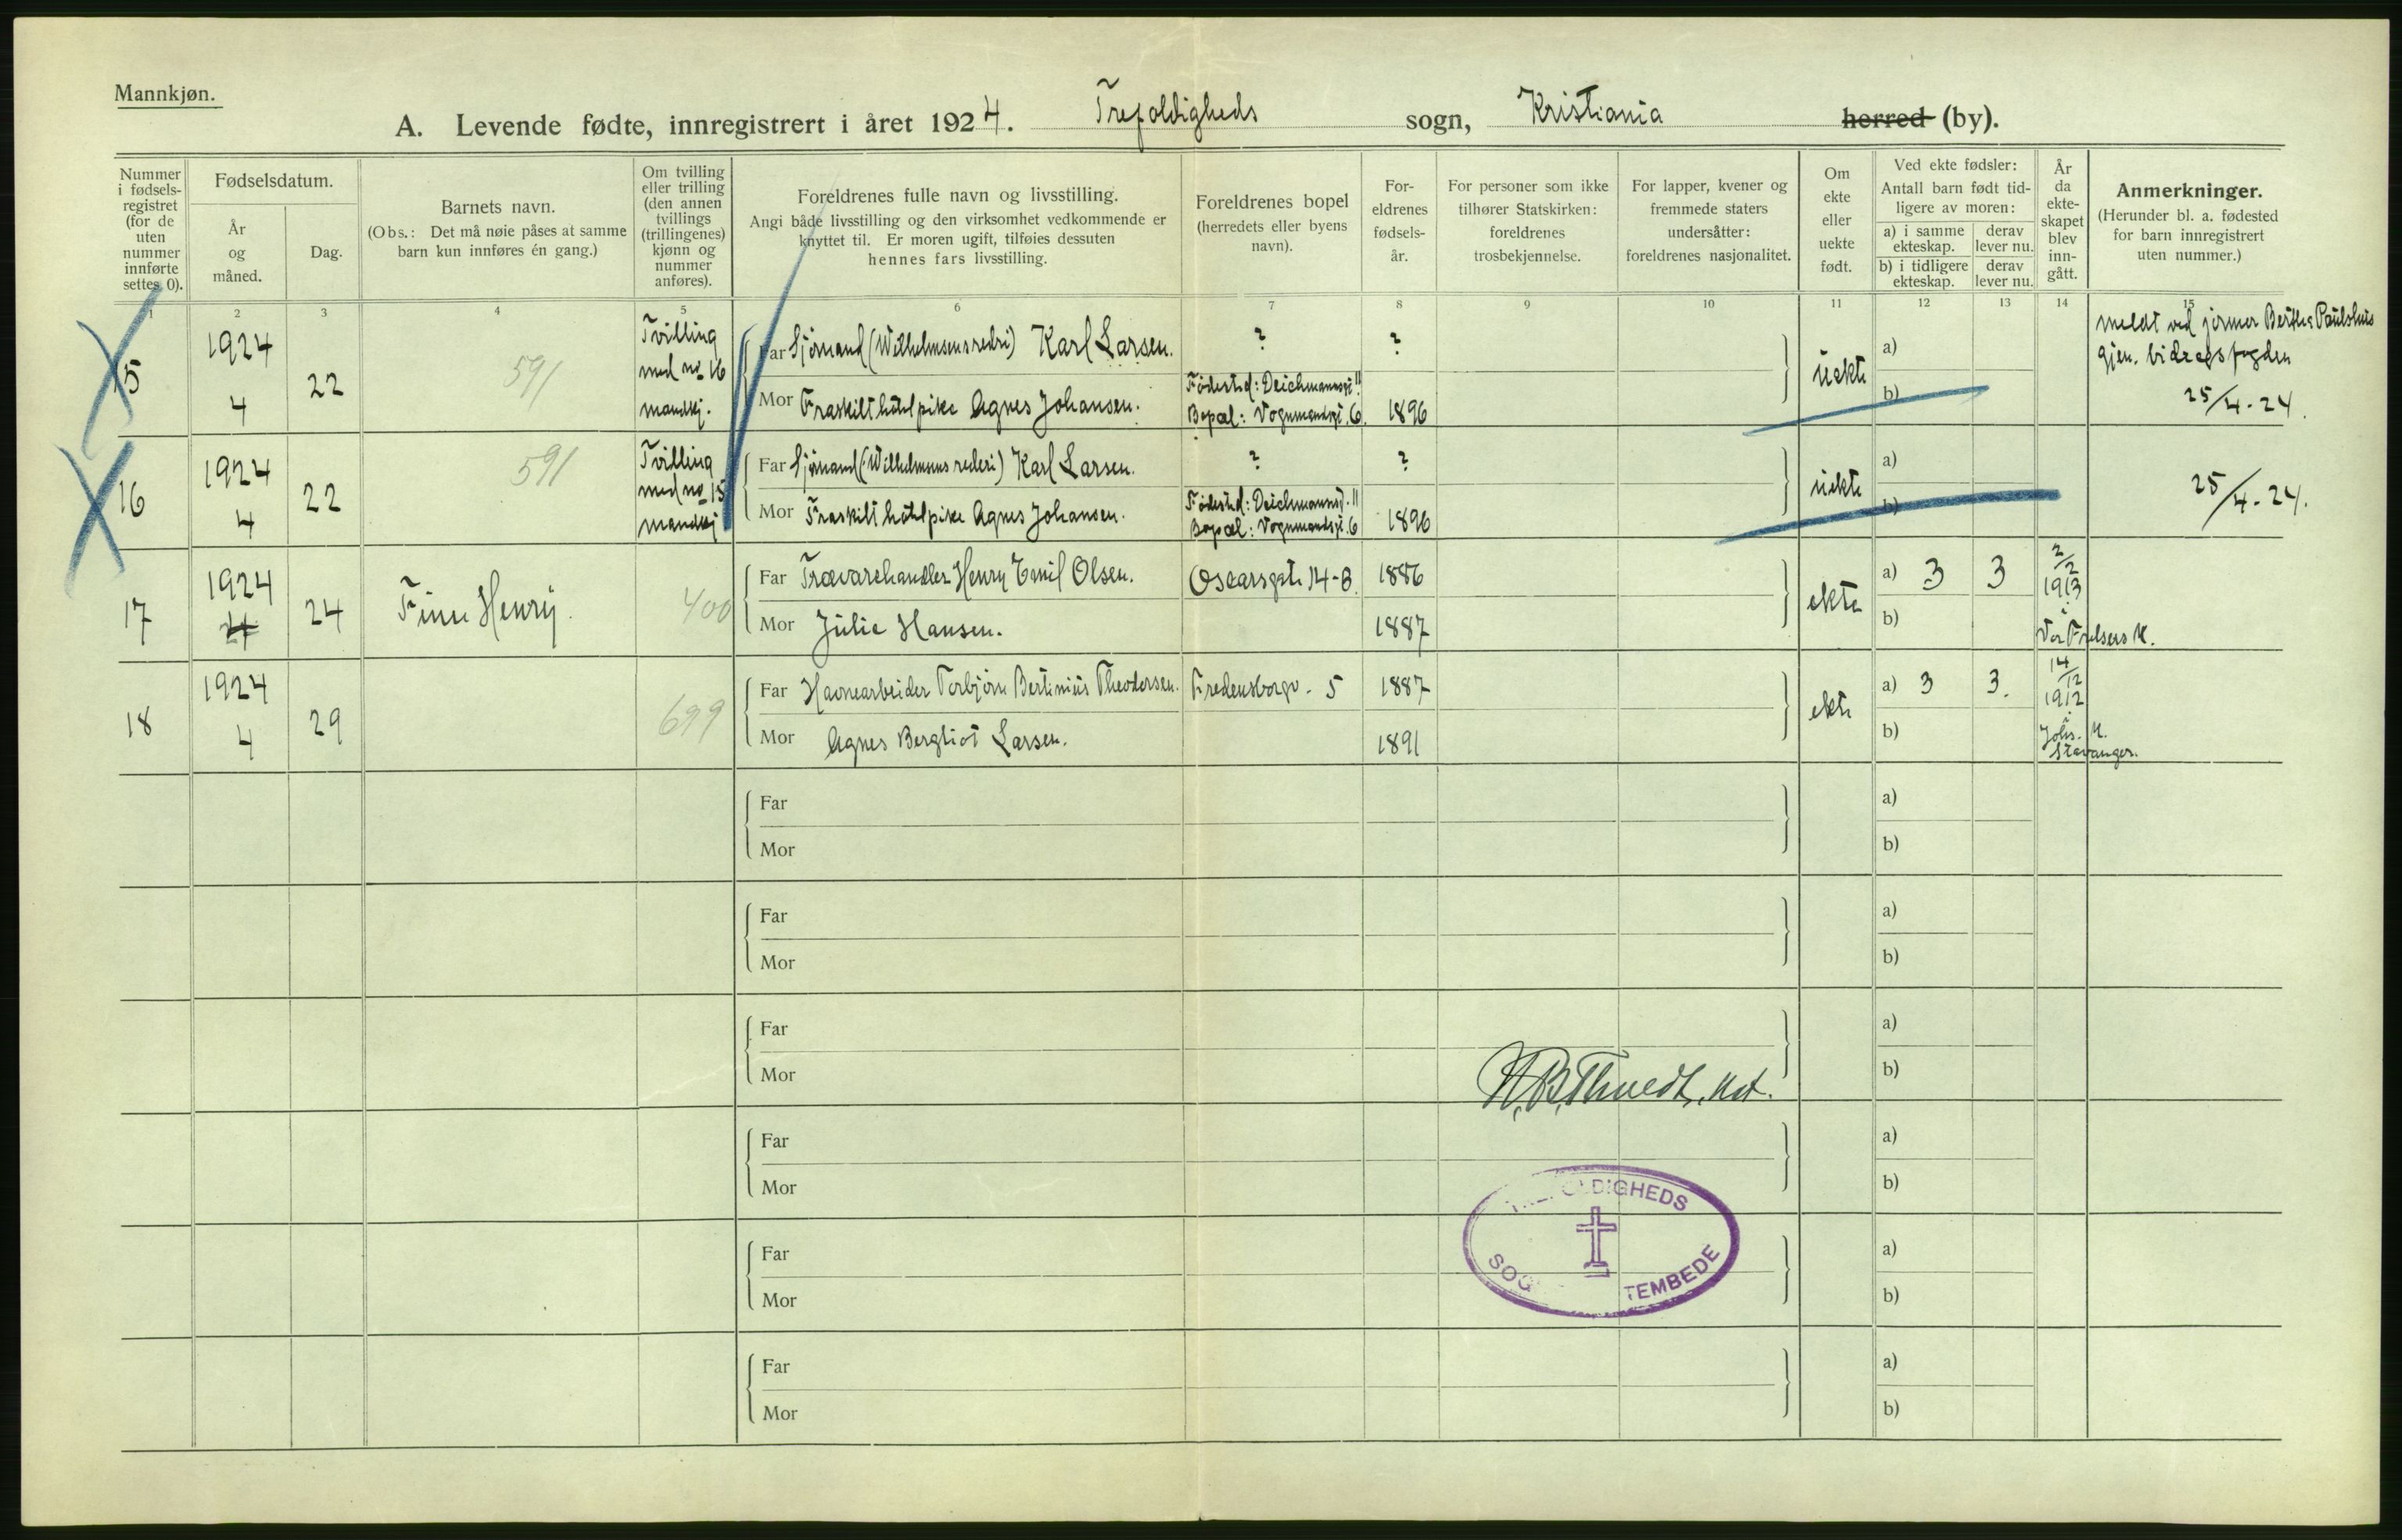 Mannkjøn.
A. Levende fødte, innregistrert i året 1924. Trefoldigheds sogn, Kristiania herred (by).
Nummer i fødsels-registret (for de uten nummer innførte settes 0).
Fødselsdatum.
År og måned.
Dag.
Barnets navn.
(Obs.: Det må nøie påses at samme barn kun innføres én gang.)
Om tvilling eller trilling (den annen tvillings (trillingenes) kjønn og nummer anføres).
Foreldrenes fulle navn og livsstilling.
Angi både livsstilling og den virksomhet vedkommende er knyttet til. Er moren ugift, tilføies dessuten hennes fars livsstilling.
Foreldrenes bopel (herredets eller byens navn).
For-eldrenes fødsels-år.
For personer som ikke tilhører Statskirken: foreldrenes trosbekjennelse.
For lapper, kvener og fremmede staters undersåtter: foreldrenes nasjonalitet.
Om ekte eller uekte født.
Ved ekte fødsler:
Antall barn født tid-ligere av moren:
a) i samme ekteskap.
derav lever nu.
b) i tidligere ekteskap.
derav lever nu.
År da ekte-skapet blev inn-gått.
Anmerkninger.
(Herunder bl. a. fødested for barn innregistrert uten nummer.)
1 2 3 4 5 6 7 8 9 10 11 12 13 14 15
15 1924 4 22 591 Tvilling med no 16 mandkj.
Far Sjømand (Wilhelmsens rederi) Karl Larsen. ? ?
Mor Fraskilt hotelpike Agnes Johansen. Fødested: Deichmannsgt. 11 Bopæl: Vognmandsgt. 6. 1896
uekte a) b)
meldt ved jormor Berthea
gjen. bidragsfogden
25/4-24.
16 1924 4 22 591 Tvilling med no 15 mandkj
Far Sjømand (Wilhelmsens rederi) Karl Larsen. ? ?
Mor Fraskilt hotelpike Agnes Johansen. Fødested: Deichmannsgt. 11 Bopæl: Vognmandsgt. 6 1896
uekte a) b)
25/4-24.
17 1924 4 24 Finn Henry. 400
Far Trævarehandler Henry Emil Olsen. Oscarsgate 14-B. 1886
Mor Julie Hansen. 1887
ekte a) 3 3 b) 2/2 1913 i Vor Frelsers K.
18 1924 4 29 699
Far Havnearbeider Torbjørn Bertinius Theodorsen. Fredensborgv. 5 1887
Mor Agnes Bergliot Larsen. 1891
ekte a) 3 3. b) 14/12 1912 i Johs. K. Stavanger.
Far a)
Mor b)
Far a)
Mor b)
Far a)
Mor b)
Far a)
Mor b)
Far a)
Mor b)
Far a)
Mor b)
OLDIGHEDS
SOG TEMBEDE